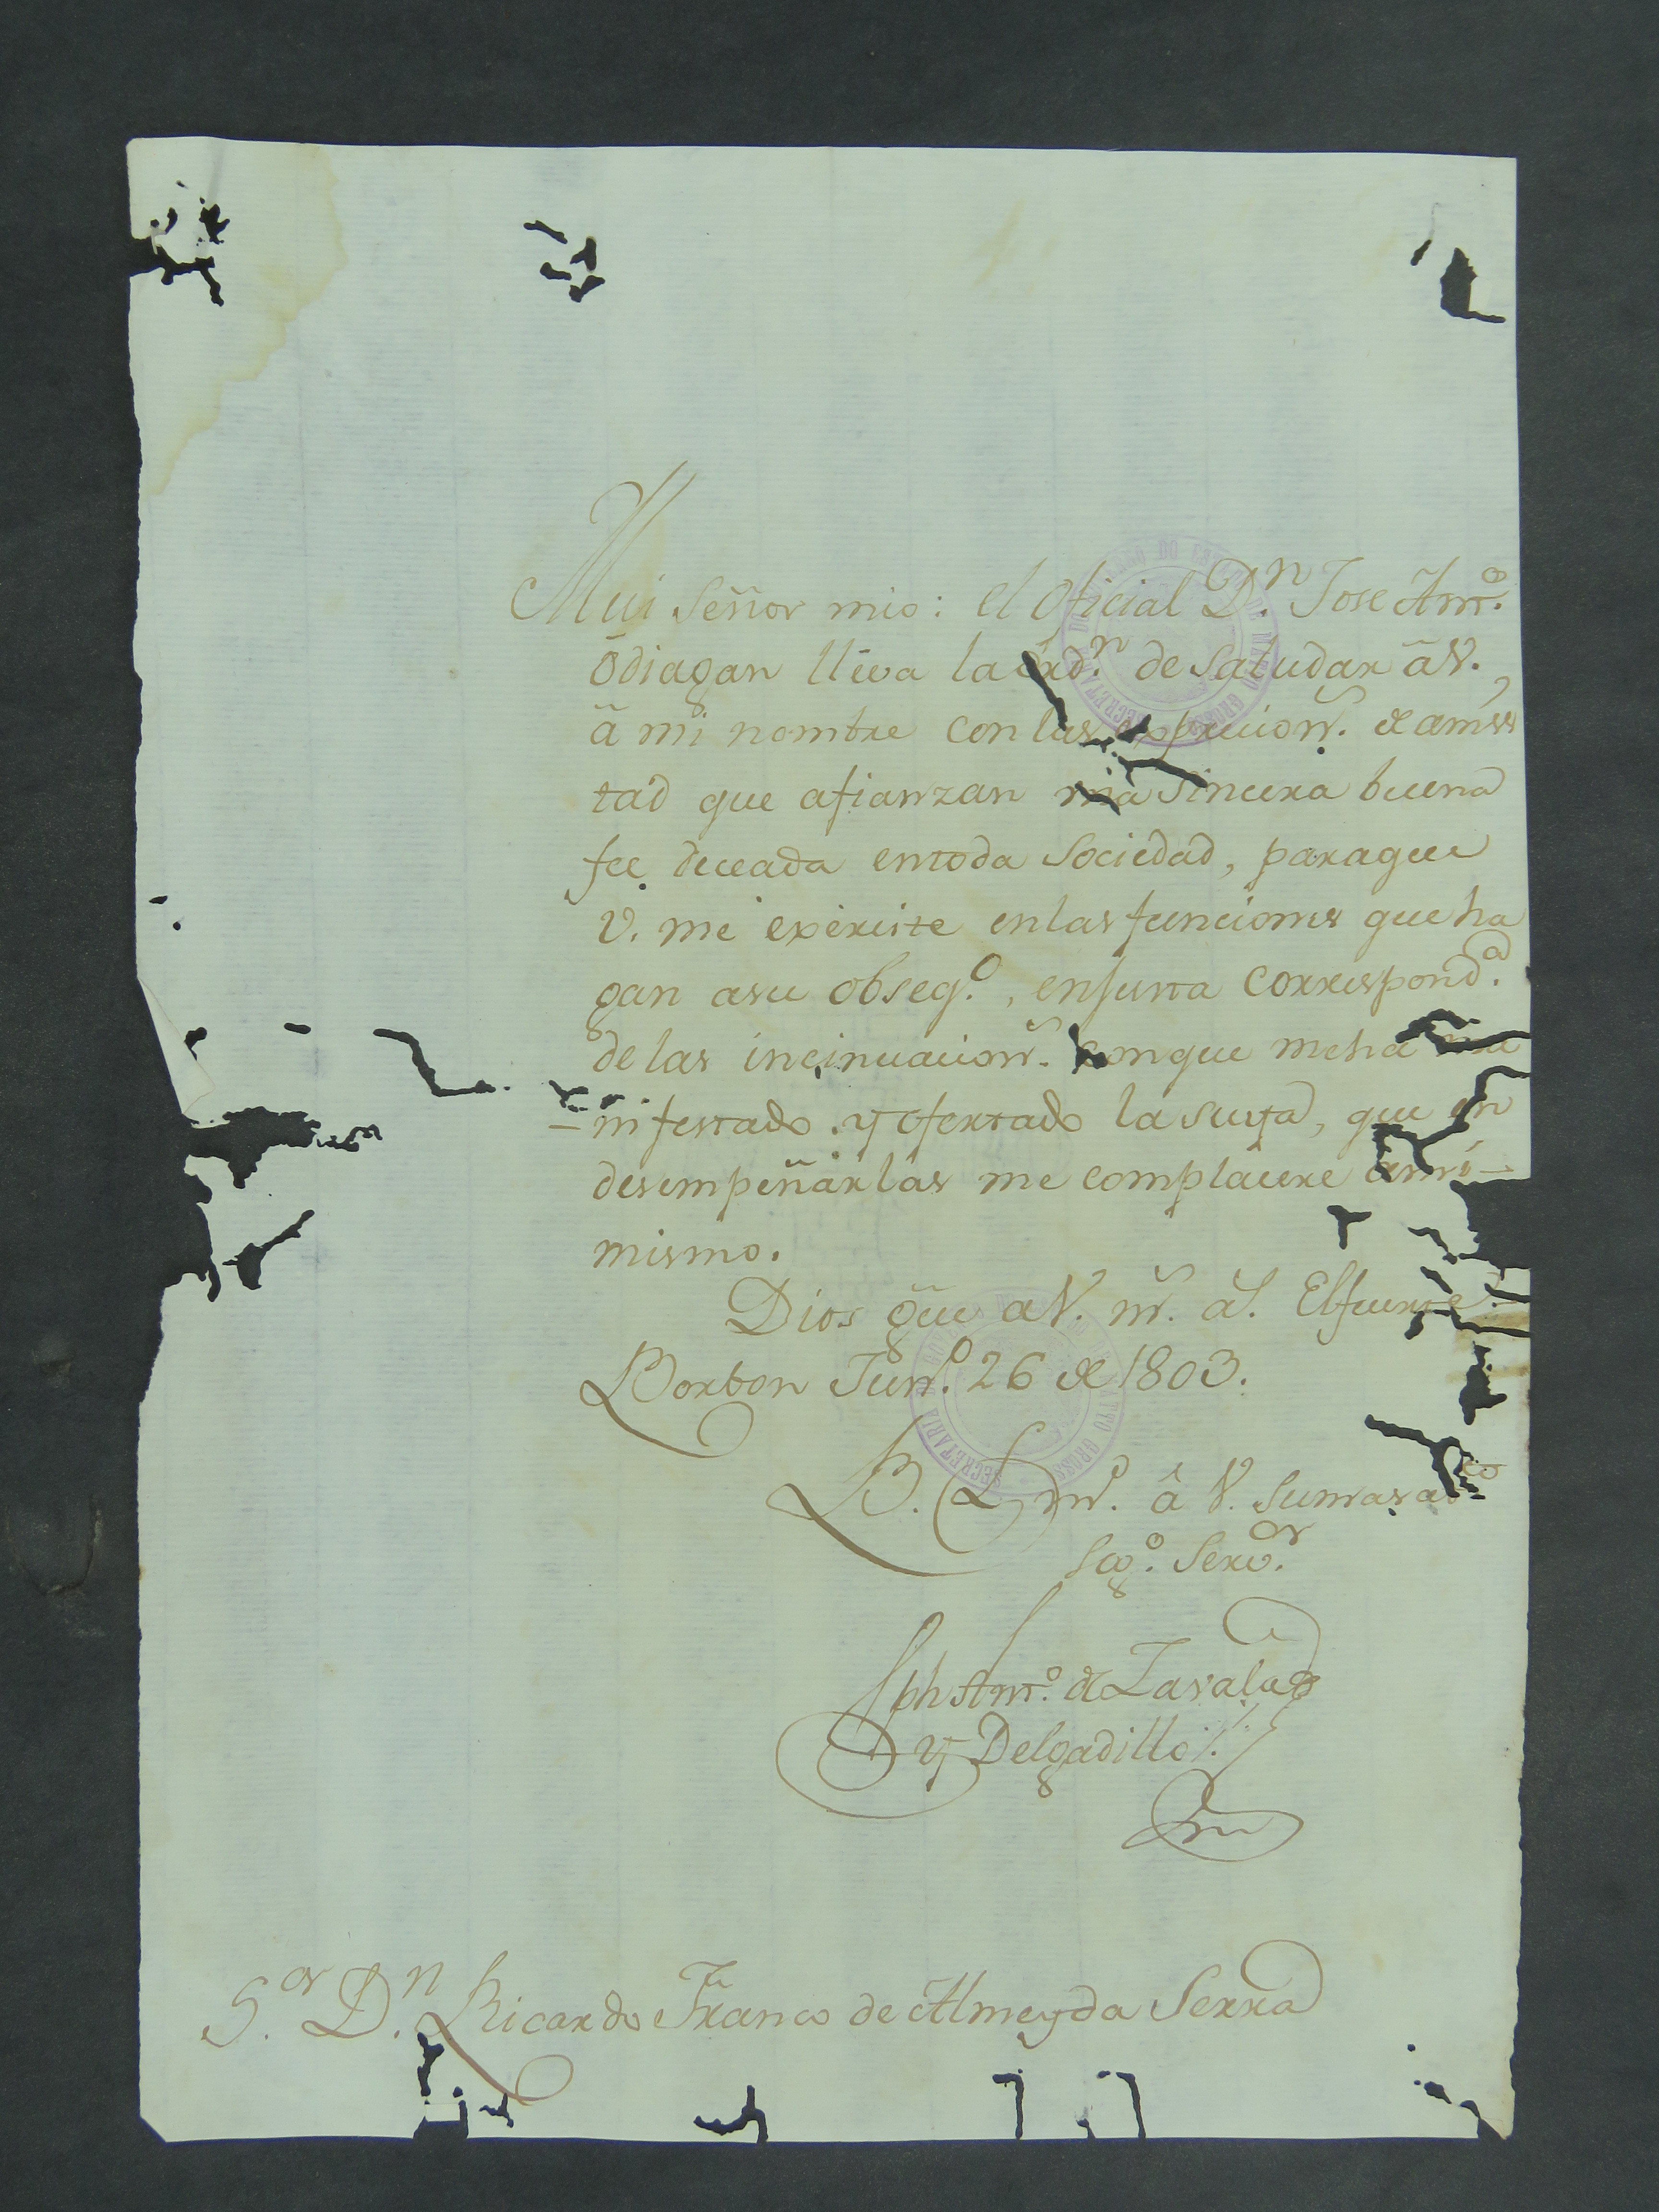 Mui Señor mio: el Oficial D.n Jose Ant.o
Odiagan lleva la ord.n de Saludar â V.,
â mi nombre con las exprecion.s de amis
tad que afianzan mia Sincera buena
fee deceada entoda Sociedad, paraque
V. me exèrcite enlas funciones que ha
gan asu obseq.o, enjusta correspond.a
de las incinuacion.s conque meha ma
nifestado y ofertado la suya, que en
desempeñarlas me complacere âmi
mismo.
Dios gũe a V. m.s a.s El fuerte
Borbon Jun.o 26 de 1803.
B. L. m.o â V. Sumas
Seg.o Serv.or
Jph Ant.o de Zavala
y Delgadillo
S.or D.n Ricardo Franco de Almeyda Serra
SECRETARIA DO GOVERNO DO ESTADO DE MATTO GROSSO
SECRETARIA DO GOVERNO DO ESTADO DE MATTO GROSSO